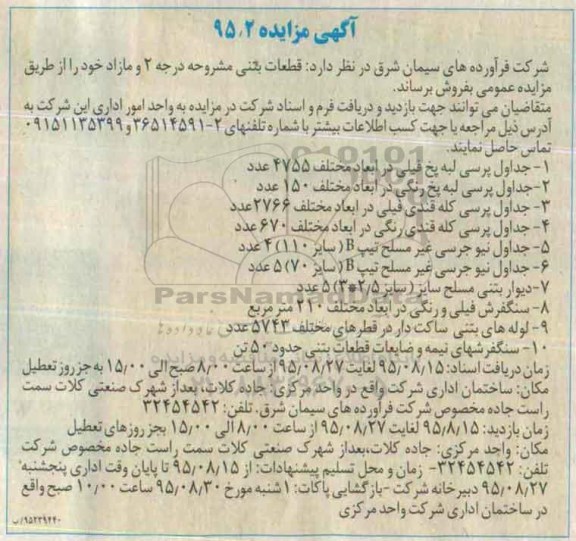 آگهی مزایده ۹۵،۲
شرکت فرآورده های سیمان شرق در نظر دارد: قطعات بتنی مشروحه درجه ۲ و مازاد خود را از طریق
مزایده عمومی بفروش برساند.
متقاضیان می توانند جهت بازدید و دریافت فرم و اسناد شرکت در مزایده به واحد امور اداری این شرکت به
آدرس ذیل مراجعه یا جهت کسب اطلاعات بیشتر با شماره تلفنهای ۲-۳۶۵۱۴۵۹۱ و ۰۹۱۵۱۱۳۵۳۹۹
تماس حاصل نمایند.
۱- جداول پرسی لبه پخ فیلی در ابعاد مختلف ۴۷۵۵ عدد
۲-جداول پرسی لبه پخ رنگی در ابعاد مختلف ۱۵۰ عدد
۳- جداول پرسی کله قندی فیلی در ابعاد مختلف ۲۷۶۶عدد
۴- جداول پرسی کله قندی رنگی در ابعاد مختلف ۶۷۰ عدد
۵- جداول نیو جرسی غیر مسلح تیپ B( سایز ۱۱۰) ۴ عدد
۶- جداول نیو جرسی غیر مسلح تیپ B( سایز ۷۰) ۵ عدد
۷-دیوار بتنی مسلح سایز ( سایز ۲/۵*۳) ۵ عدد
۸- سنگفرش فیلی و رنگی در ابعاد مختلف ۲۱۰ متر مربع
۹- لوله های بتنی ساکت دار در قطرهای مختلف ۵۷۴۳ عدد
۱۰- سنگفرشهای نیمه و ضایعات قطعات بتنی حدود ۵۰ تن
زمان دریافت اسناد: ۹۵/۰۸/۱۵ لغایت ۹۵/۰۸/۲۷ از ساعت ۸/۰۰ صبح الی ۱۵/۰۰ به جز روز تعطیل
مکان: ساختمان اداری شرکت واقع در واحد مرکزی: جاده کلات، بعداز شهرک صنعتی کلات سمت
راست جاده مخصوص شرکت فرآورده های سیمان شرق. تلفن: ۳۲۴۵۴۵۴۲
زمان بازدید: ۹۵/۸/۱۵ لغایت ۹۵/۰۸/۲۷ از ساعت ۸/۰۰ الی ۱۵/۰۰ بجز روزهای تعطیل
مکان: واحد مرکزی: جاده کلات،بعداز شهرک صنعتی کلات سمت راست جاده مخصوص شرکت
تلفن: ۳۲۴۵۴۵۴۲- زمان و محل تسلیم پیشنهادات: از ۹۵/۰۸/۱۵ تا پایان وقت اداری پنجشنبه
۹۵/۰۸/۲۷ دبیرخانه شرکت -بازگشایی پاکات: ۱شنبه مورخ ۹۵/۰۸/۳۰ ساعت ۱۰/۰۰ صبح واقع
در ساختمان اداری شرکت واحد مرکزی
۹۵۲۳۹۴۴۰/ب
ParsNamadData